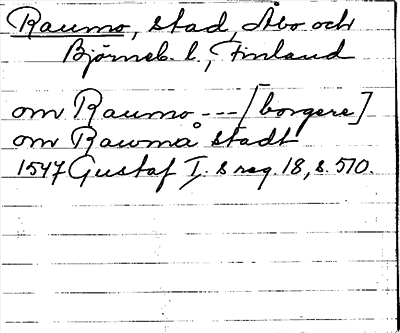 Raumo, stad, Åbo och
Björneb. l., Finland
om Raumo --- [borgere]
om Rawmå stadt
1547 Gustaf I:s reg. 18, s. 570.